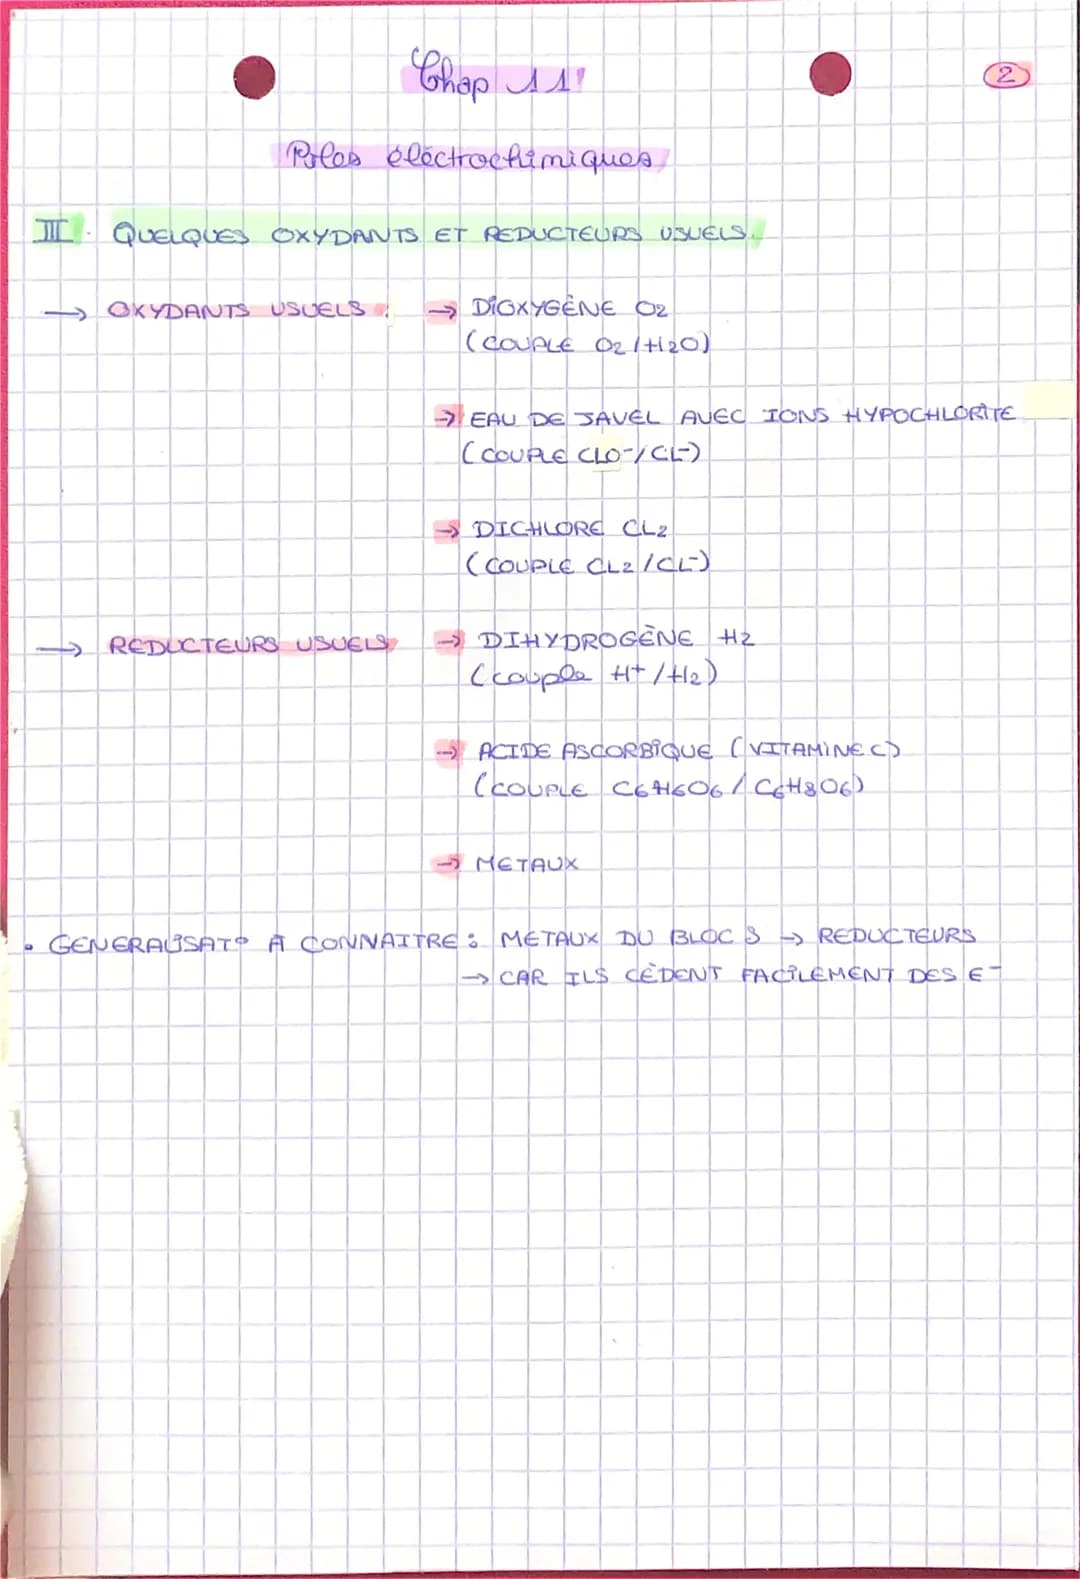 Chap 11
2
Piles électrochimiques
III. QUELQUES OXYDANTS ET REDUCTEURS USUELS.
→ OXYDANTS USUELS : → DIOXYGÈNE O2
(COUPLE O2/H2O)
→ EAU DE JAVEL AVEC IONS HYPOCHLORITE
(COUPLE CLO-/CL-)
→ DICHLORE CL2
(COUPLE CL2/CL-)
→ REDUCTEURS USUELS → DIHYDROGÈNE H2
(couple H+/H2)
→ ACIDE ASCORBIQUE (VITAMINE C)
(COUPLE C6H6O6/C6H8O6)
→ METAUX
• GENERALISAT° A CONNAITRE : METAUX DU BLOC S → REDUCTEURS
→ CAR ILS CÈDENT FACILEMENT DES E-